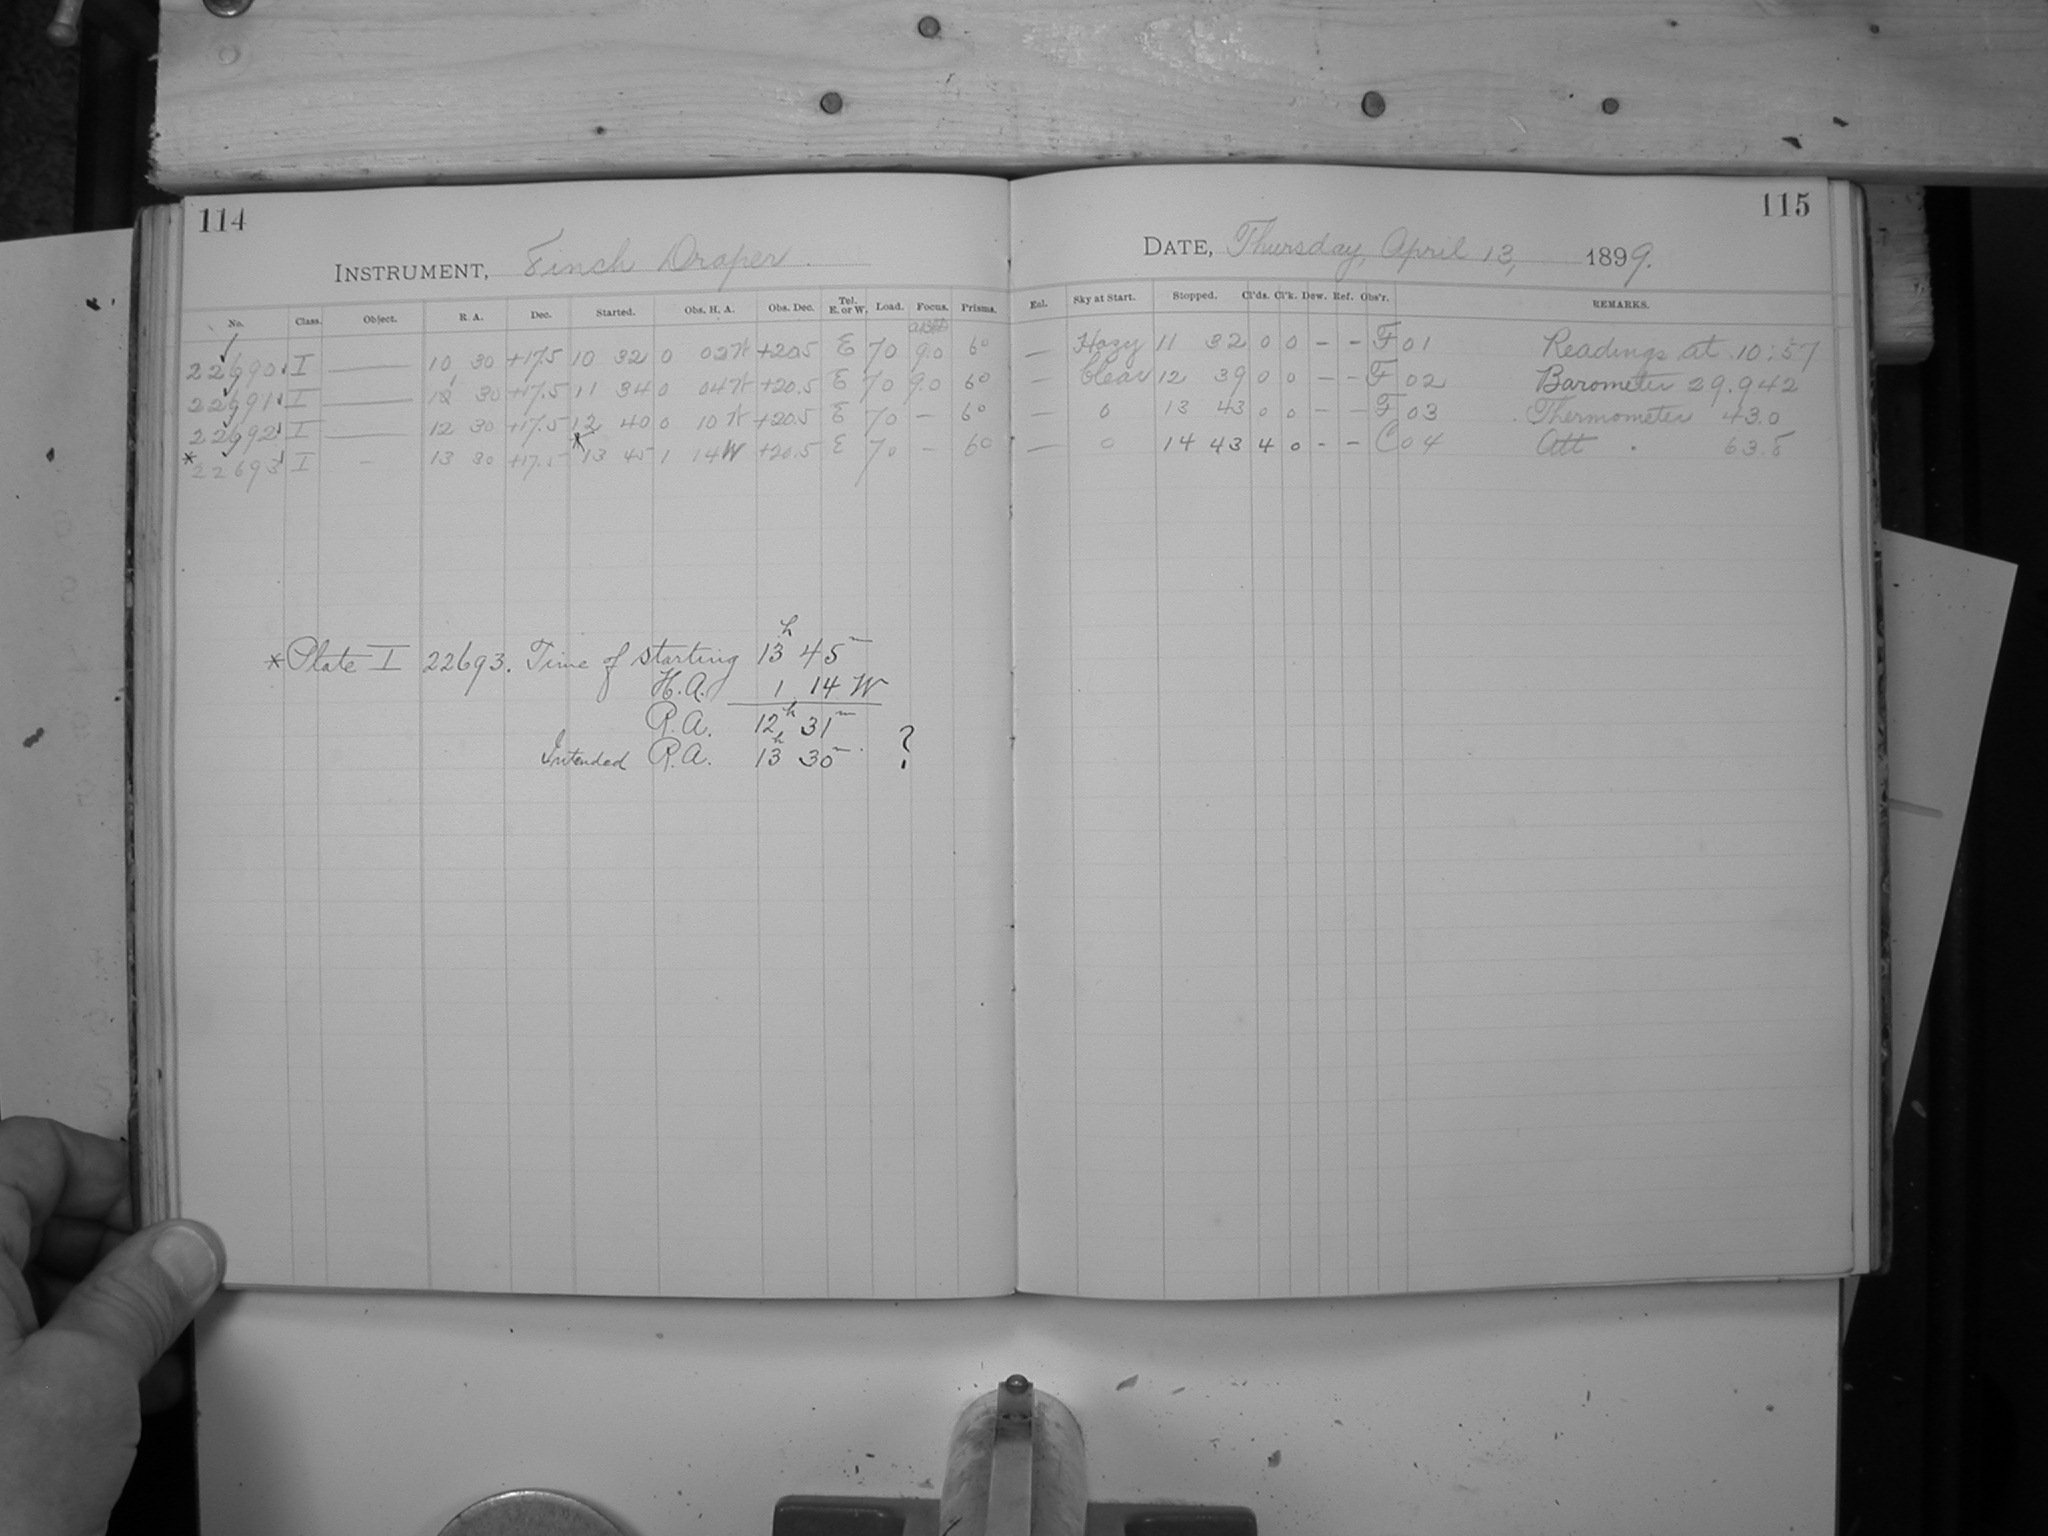 114
INSTRUMENT, 8 inch Draper.
No. Class. Object. R. A. Dec. Started. Obs. H. A. Obs. Dec. Tel. E. or W. Load. Focus. Prisms.
22690 I — 10 30 +17.5 10 32 0 02 W +20.5 E 70 90 60
22691 I — 12 30 +17.5 11 34 0 04 W +20.5 E 70 90 60
22692 I — 12 30 +17.5 12 40 0 10 W +20.5 E 70 – 60
* 22693 I – 13 30 +17.5 * 13 45 1 14 W +20.5 E 70 – 60
* Plate I 22693. Time of starting 13h 45m
H.A. 1 14 W
R.A. 12h 31m
Intended R.A. 13h 30m. ?
115
DATE, Thursday, April 13, 1899.
Eal. Sky at Start. Stopped. Cl'ds. Cl'k. Dew. Ref. Obs'r. REMARKS.
— Hazy 11 32 0 0 – – F 01 Readings at 10:57
— Clear 12 39 0 0 – – F 02 Barometer 29.942
— 0 13 43 0 0 – – F 03 Thermometer 43.0
— 0 14 43 4 0 – – C 04 Att. 63.5